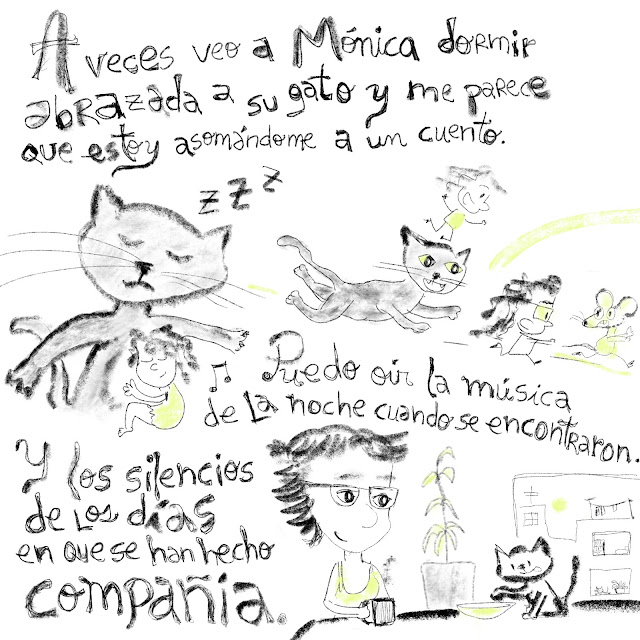 A veces veo a Mónica dormir
abrazada a su gato y me parece
que estoy asomándome a un cuento.
z z z
Puedo oir la música
de la noche cuando se encontraron.
Y los silencios
de los días
en que se han hecho
compañía.